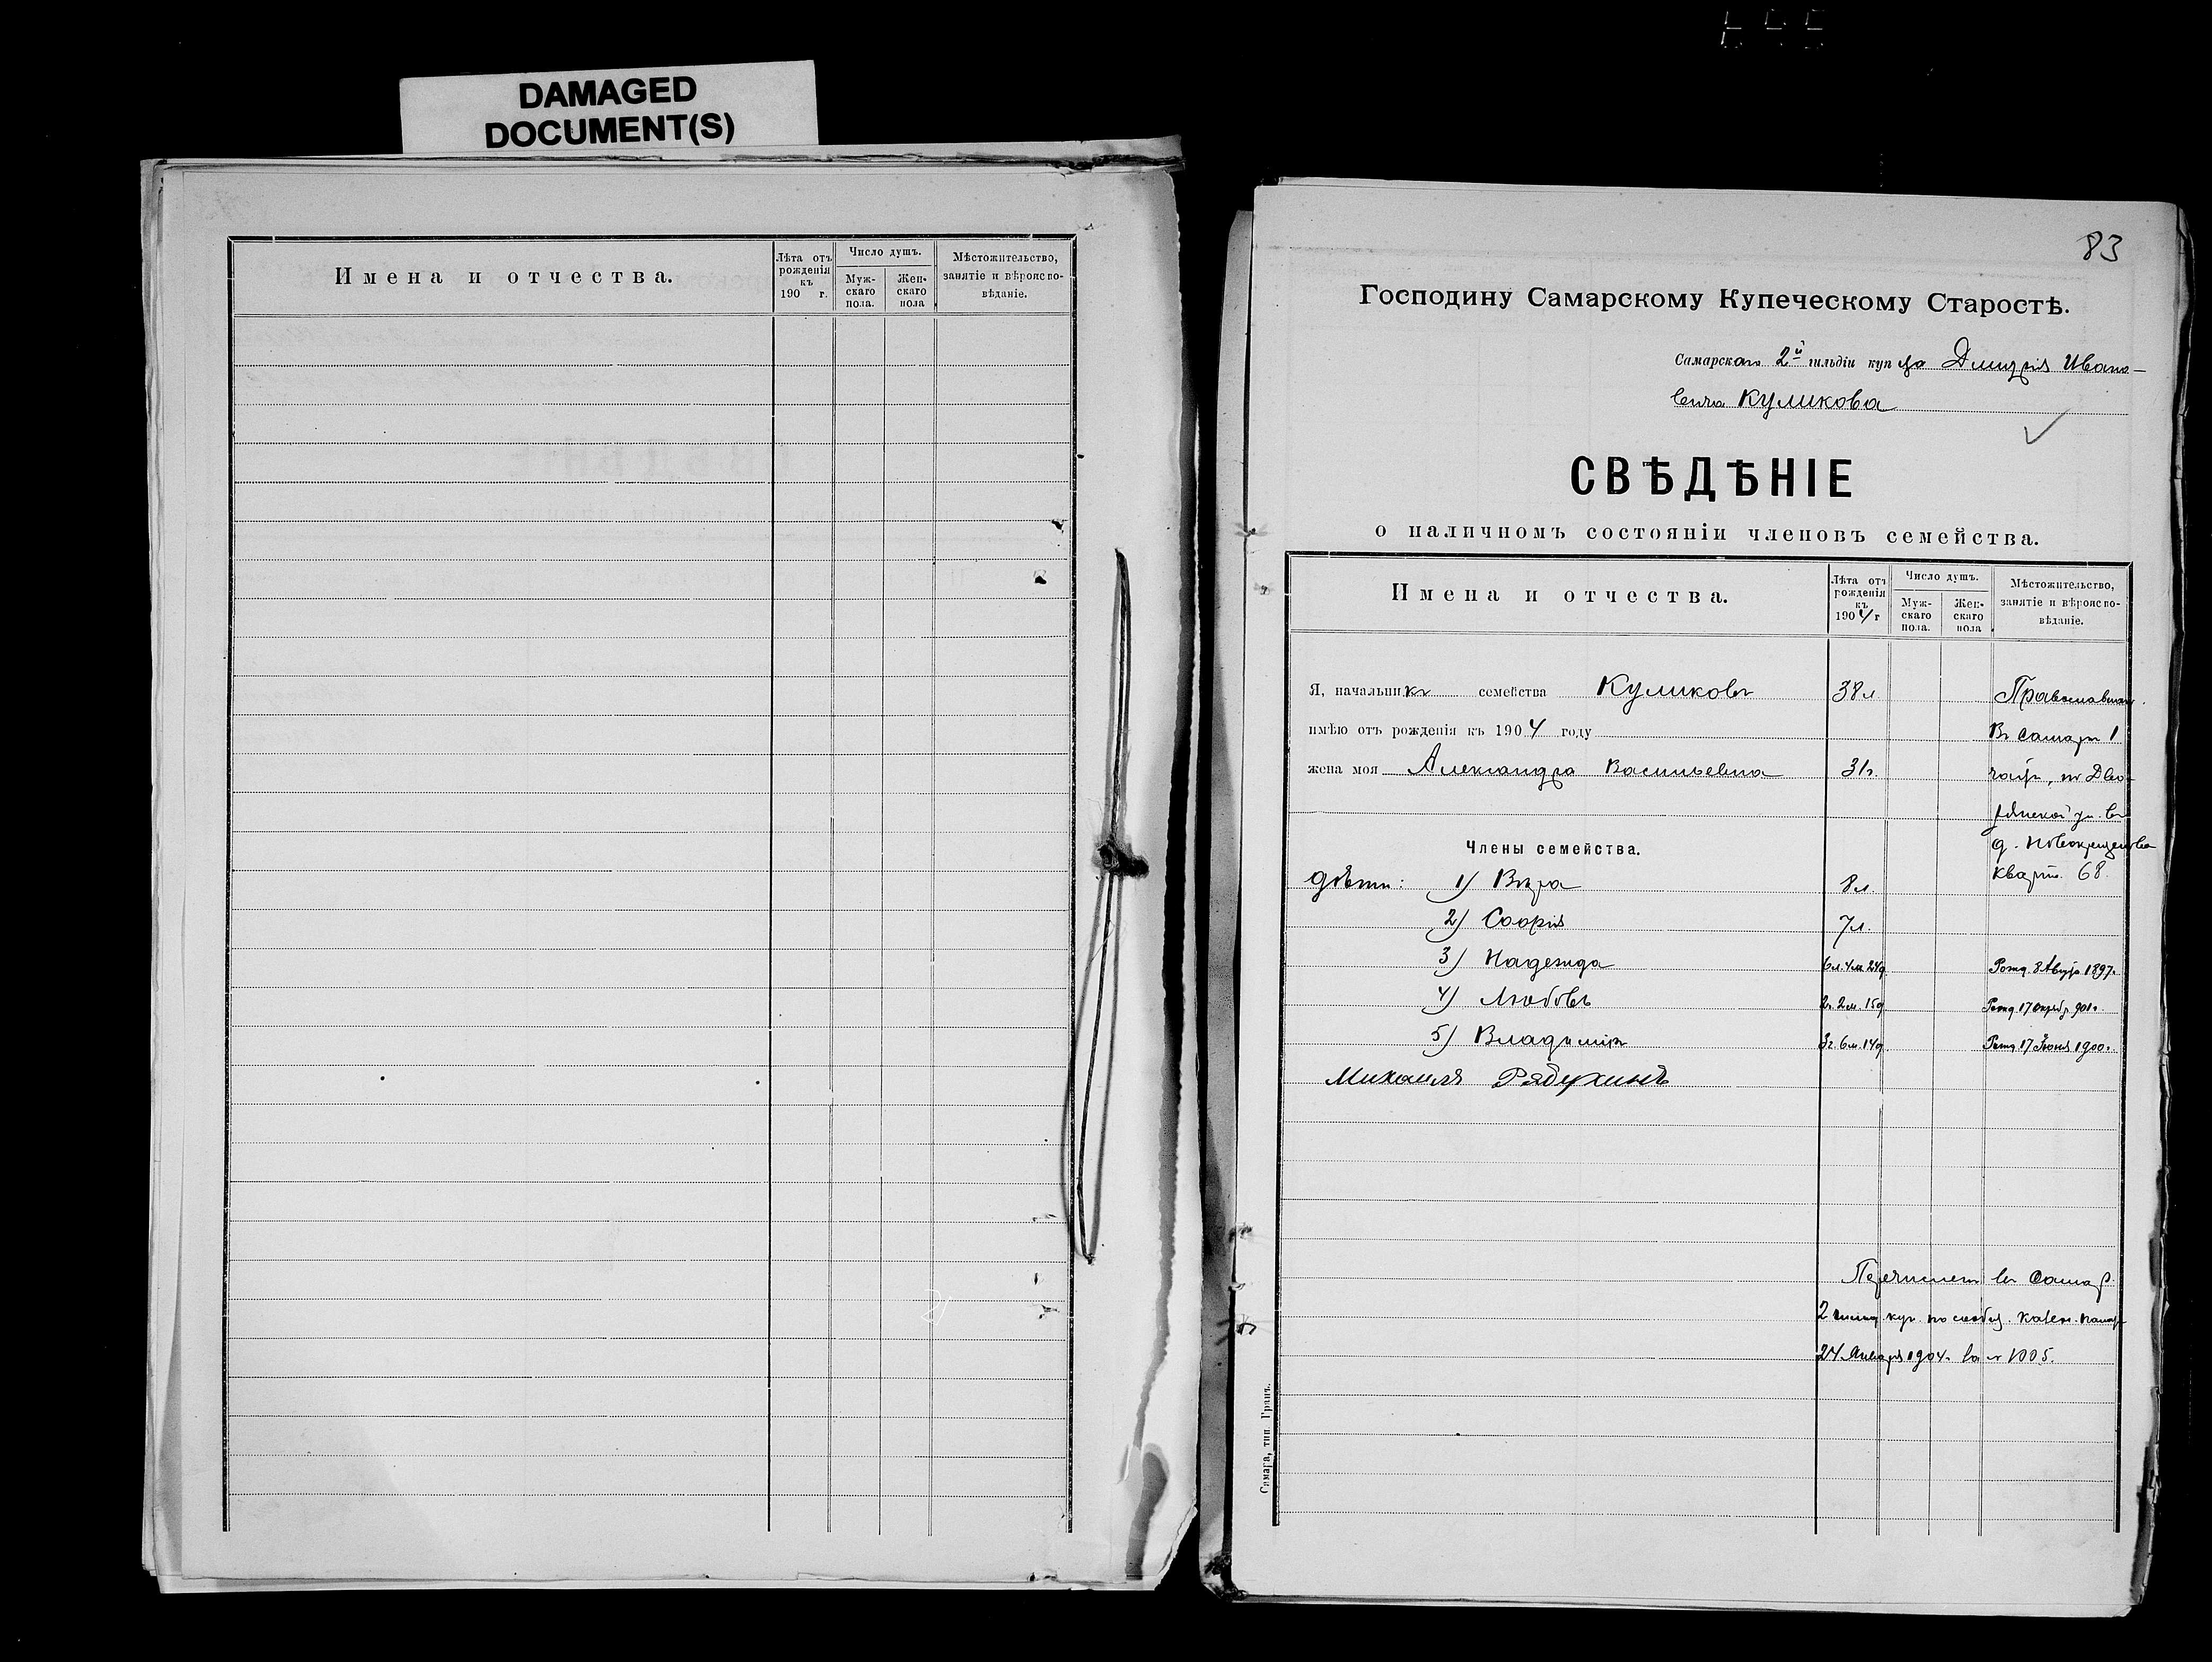 DAMAGED
DOCUMENT(S)
Имена и отчества.
Лѣта отъ рожденія къ 190 г.
Число душъ.
Мужскаго пола.
Женскаго пола
Мѣстожительство, занятіе и вѣроисповѣданіе.
83
Господину Самарскому Купеческому Старостѣ.
Самарскаго 2й гильдіи купца Дмитрія Ивано-
вича Куликова
СВѢДѢНІЕ
о наличномъ состояніи членовъ семейства.
Имена и отчества.
Лѣта отъ рожденія къ 1904 г
Число душъ.
Мужскаго пола.
Женскаго пола
Мѣстожительство, занятіе и вѣроисповѣданіе.
Я, начальникъ семейства Куликовъ 38 л. Православнаго.
имѣю отъ рожденія къ 1904 году Въ Самарѣ 1
жена моя Александра Васильевна 31 г. части, по Дво-
рянской ул. въ
Члены семейства. д. Новокрещенова
дѣти: 1) Вѣра 8 л. кварт. 68.
2) Софія 7 л.
3) Надежда 6 л. 4 м. 24 д. Рожд. 8 Авгус. 1897 г.
4) Любовь 2 г. 2 м. 15 д. Рожд. 17 Октяб. 901 г.
5) Владиміръ 3 г. 6 м. 14 д. Рожд. 17 Іюня 1900 г.
Михаилъ Рябухинъ
Перечислен въ Самар.
2 гильд. куп. по сообщ. казен. палат
24 Января 1904 г. за № 1005.
Самара, тип. Гранъ.